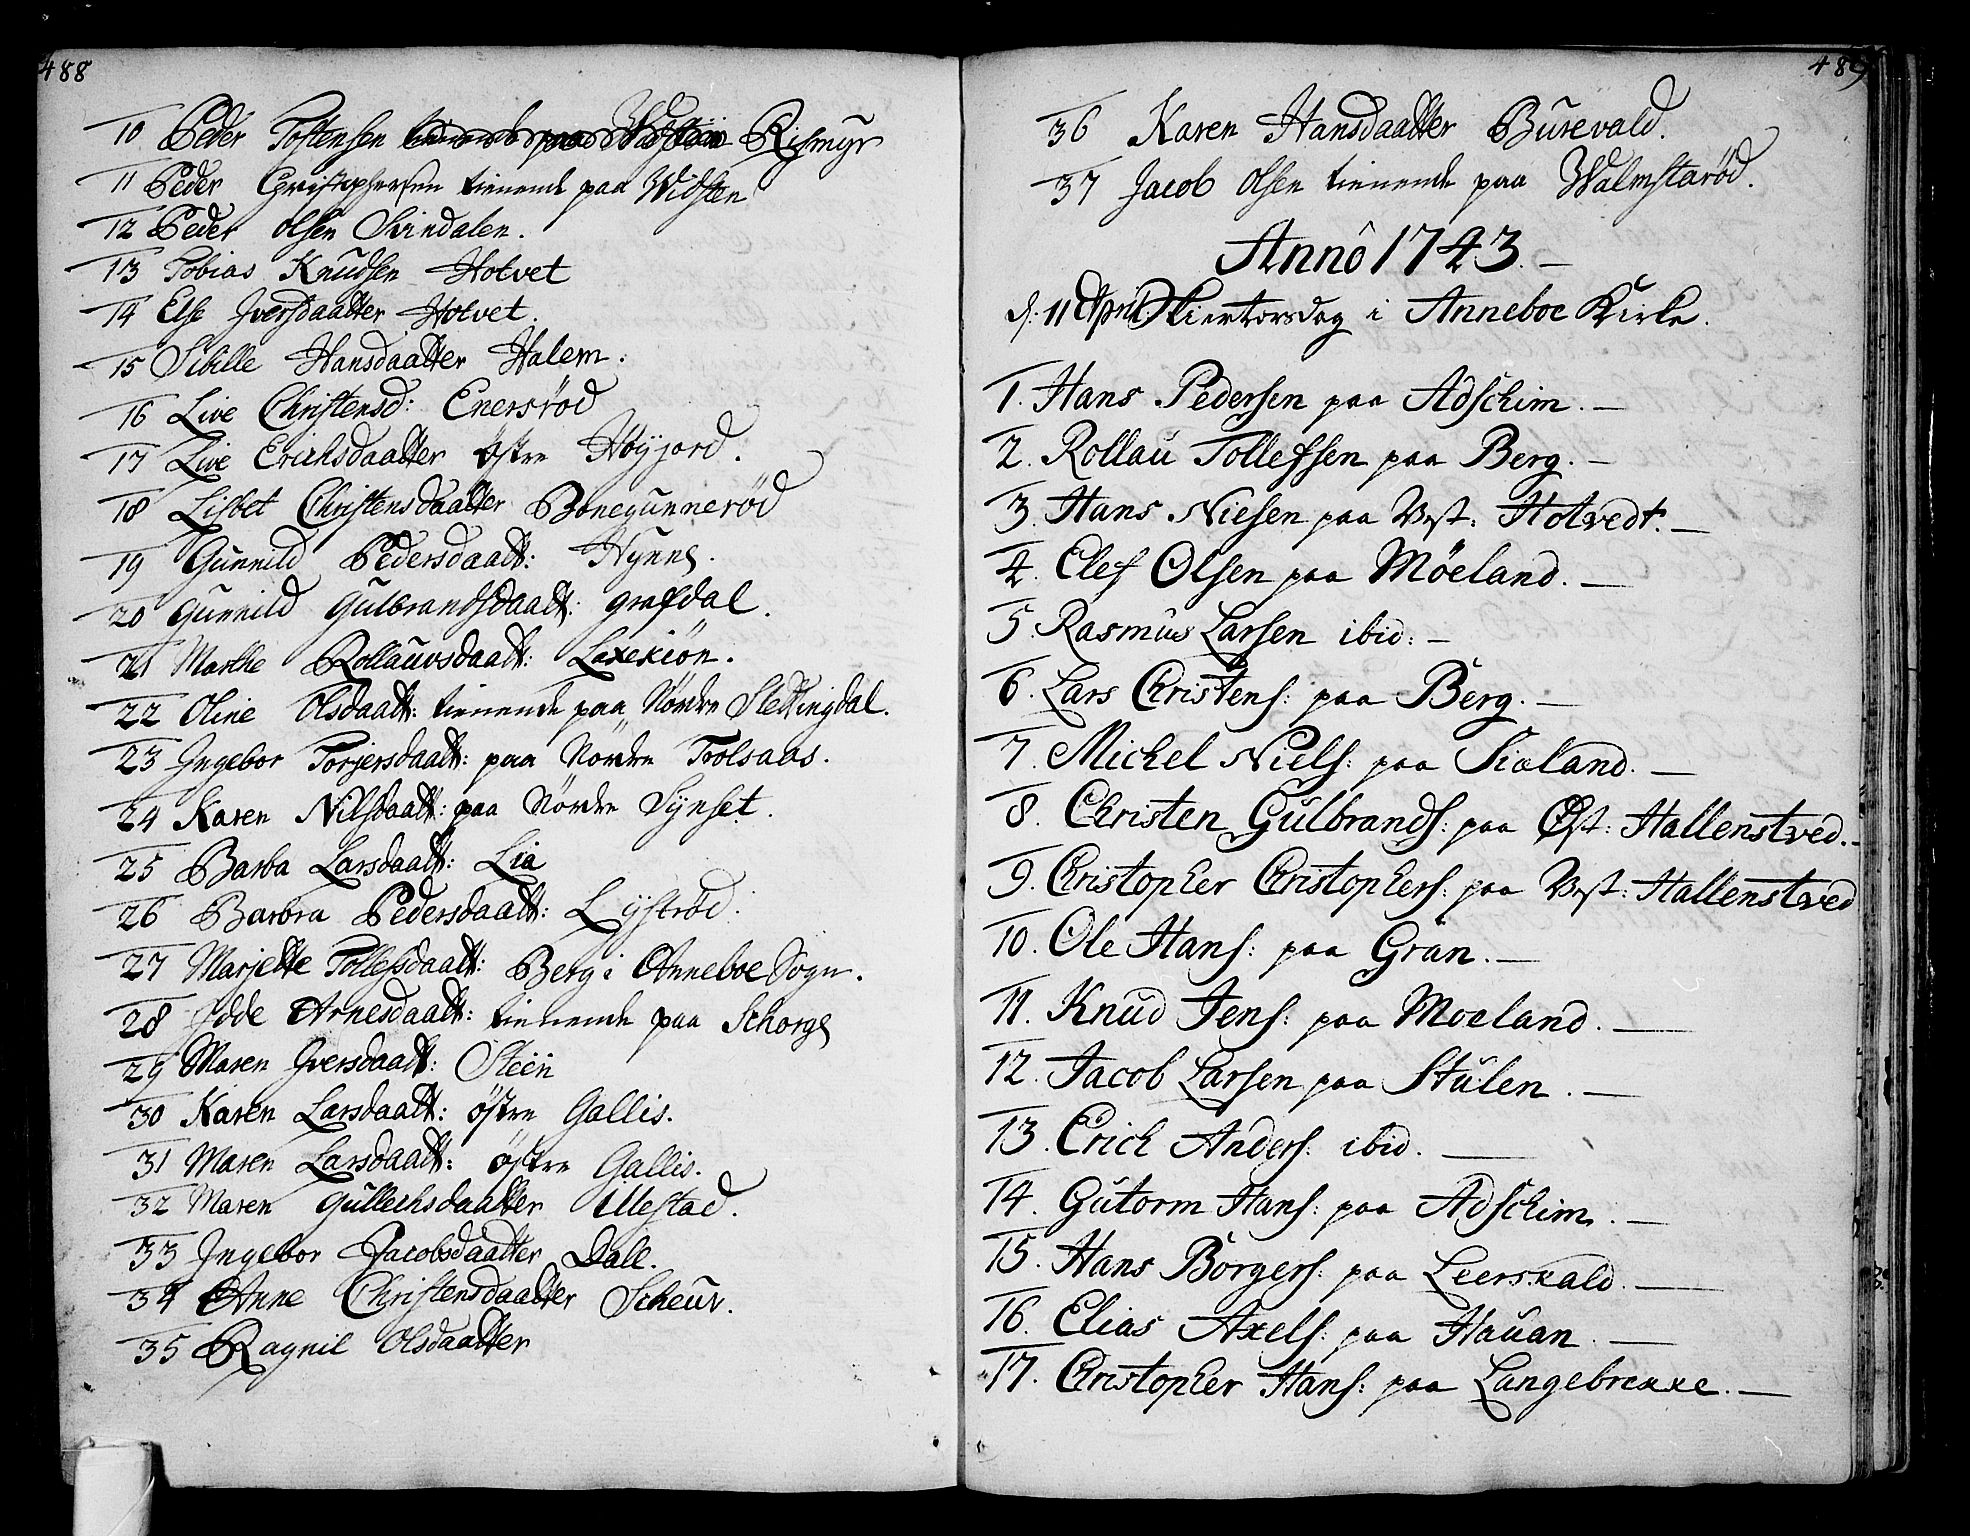 488
10 Peder Tostensen Rismyr
11 Peder Christophersen tienende paa Widsten
12 Peder Olsen Svindalen.
13 Tobias Knudsen Hotvet
14 Else Iversdaatter Hotvet.
15 Sibille Hansdaatter Halem.
16 Live Christensd: Enersröd
17 Live Erichsdaatter östre Höyjord.
18 Lisbet Christensdaatter Bonegunneröd
19 Gunnild Pedersdaatt: Hynne.
20 Gunnild Gulbrandsdaatt: Grafdal.
21 Marthe Rollaûvsdaatt: Laxekiön.
22 Oline Olsdaatt: tienende paa Nördre Slettingdal.
23 Ingebor Torjersdaatt: paa Nördre Trolsaas.
24 Karen Nilsdaatt: paa Nördre Synset.
25 Barba Larsdaatt: Lia
26 Barbra Pedersdaatt: Lyströd.
27 Marjette Tollefsdaatt: Berg i Anneboe Sogn.
28 Idde Arnesdaatt: tienende paa Schorge
29 Maren Iversdaatt: Steen
30 Karen Larsdaatt: östre Gallis.
31 Maren Larsdaatt: östre Gallis.
32 Maren Gullechsdaatter Illestad.
33 Ingebor Jacobsdaatter Dall.
34 Anne Christensdaatter Scheur.
35 Ragnil Olsdaatter
489
36 Karen Hansdaatter Burevald.
37 Jacob Olsen tienende paa Walmstaröd.
Annô 1743.
d. 11 April Skiertorsdag i Anneboe Kirke.
1. Hans Pedersen paa Adschim.
2. Rollau Tollefsen paa Berg.
3. Hans Nielsen paa Vest: Hotvedt.
4. Elef Olsen paa Möeland.
5. Rasmus Larsen ibid:
6. Lars Christens: paa Berg.
7. Michel Niels: paa Sioland.
8. Christen Gulbrands: paa Öst: Hallenstved.
9. Christopher Christophers: paa Vest: Hallenstved
10. Ole Hans: paa Gran.
11. Knud Jens: paa Moeland.
12. Jacob Larsen paa Stulen.
13. Erich Anders: ibid.
14. Gutorm Hans: paa Adschim.
15. Hans Börgers: paa Leerskald.
16. Elias Axels: paa Hauan.
17. Christopher Hans: paa Langebrekke.